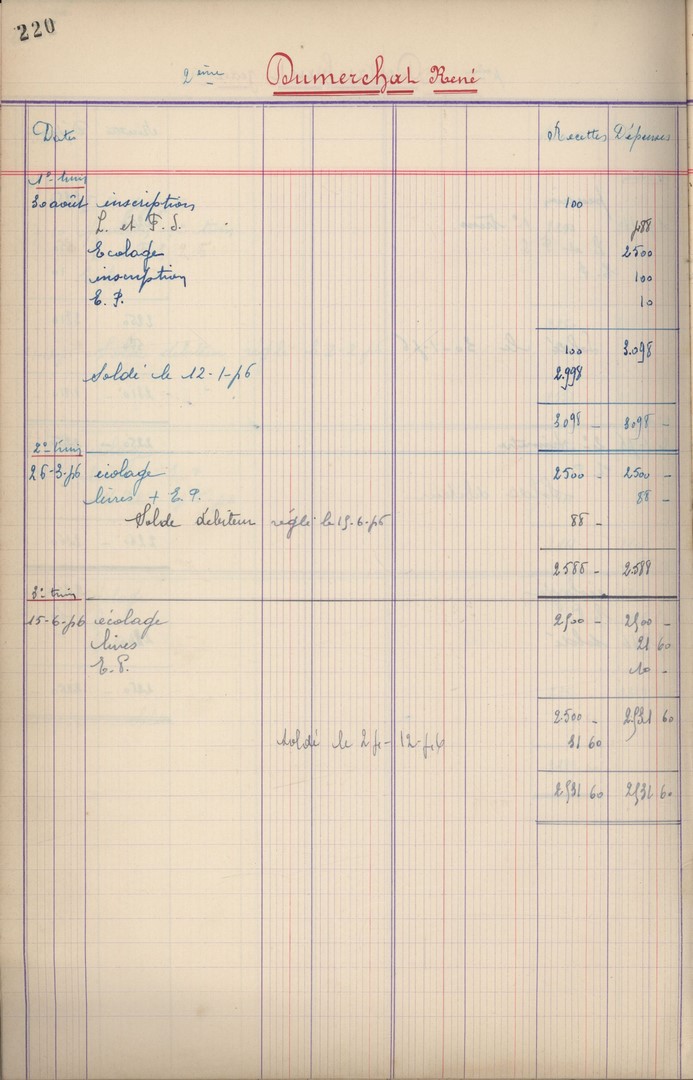 220
2ème Dumerchat René
Date Recettes Dépenses
1er trim
30 août inscription 100
L. et F. S. 488
Ecolage 2500
inscription 100
E. P. 10
100 3.098
Soldé le 12-1-46 2.998
3098 - 3098 -
2e trim
26-3-46 écolage 2500 - 2500 -
livres + E.P. 88 -
Solde débiteur réglé le 15-6-46 88 -
2588 - 2.588
3e trim
15-6-46 écolage 2500 - 2500 -
livres 21 60
E.P. 10 -
2.500 - 2531 60
Soldé le 24-12-46 31 60
2531 60 2531 60